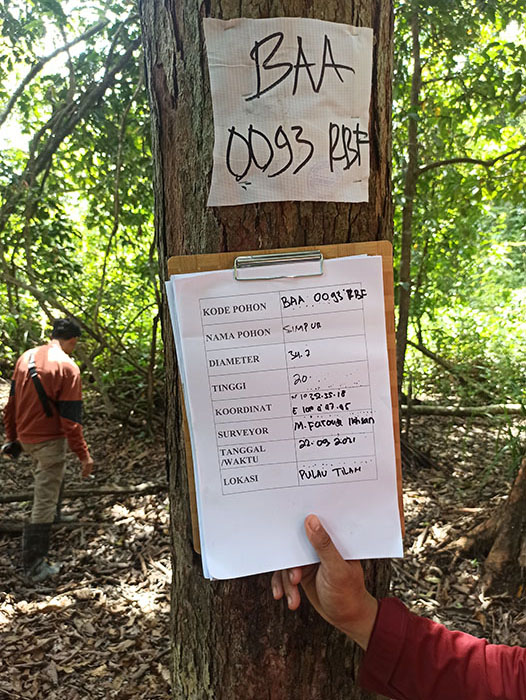 BAA
0093 RBF
KODE POHON BAA 0093 RBF
NAMA POHON SIMPUR
DIAMETER 34.2
TINGGI 20
KOORDINAT
SURVEYOR M. Farouq Ikhsan
TANGGAL /WAKTU 22.09.2021
LOKASI PULAU TILAN